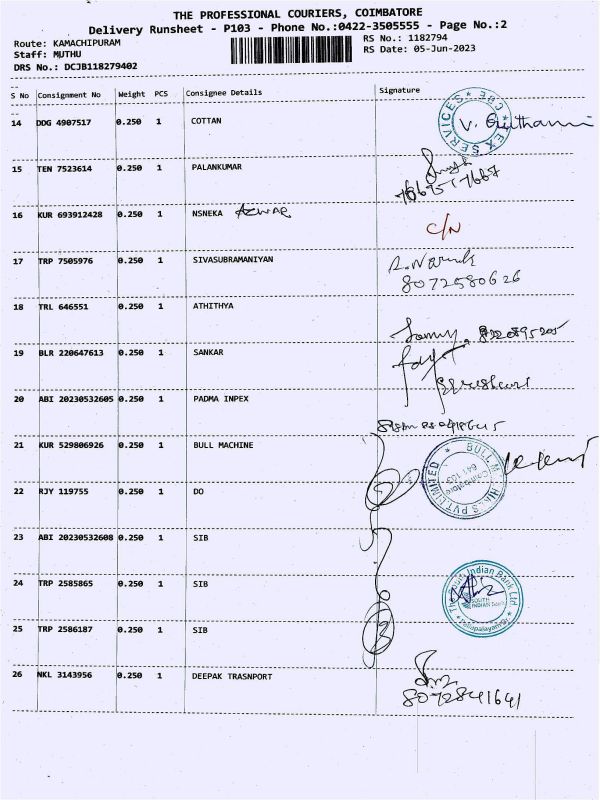 THE PROFESSIONAL COURIERS, COIMBATORE
Delivery Runsheet - P103 - Phone No.:0422-3505555 - Page No.:2
Route: KAMACHIPURAM RS No.: 1182794
Staff: MUTHU RS Date: 05-Jun-2023
DRS No.: DCJB118279402
S No Consignment No Weight PCS Consignee Details Signature
14 DDG 4907517 0.250 1 COTTAN
15 TEN 7523614 0.250 1 PALANKUMAR
16 KUR 693912428 0.250 1 NSNEKA C/N
17 TRP 7505976 0.250 1 SIVASUBRAMANIYAN
8072580626
18 TRL 646551 0.250 1 ATHITHYA
19 BLR 220647613 0.250 1 SANKAR
20 ABI 20230532605 0.250 1 PADMA INPEX
21 KUR 529806926 0.250 1 BULL MACHINE
22 RJY 119755 0.250 1 DO
23 ABI 20230532608 0.250 1 SIB
24 TRP 2585865 0.250 1 SIB
The South Indian Bank Ltd.
SOUTH
INDIAN Bank
25 TRP 2586187 0.250 1 SIB
26 NKL 3143956 0.250 1 DEEPAK TRASNPORT
8072841641